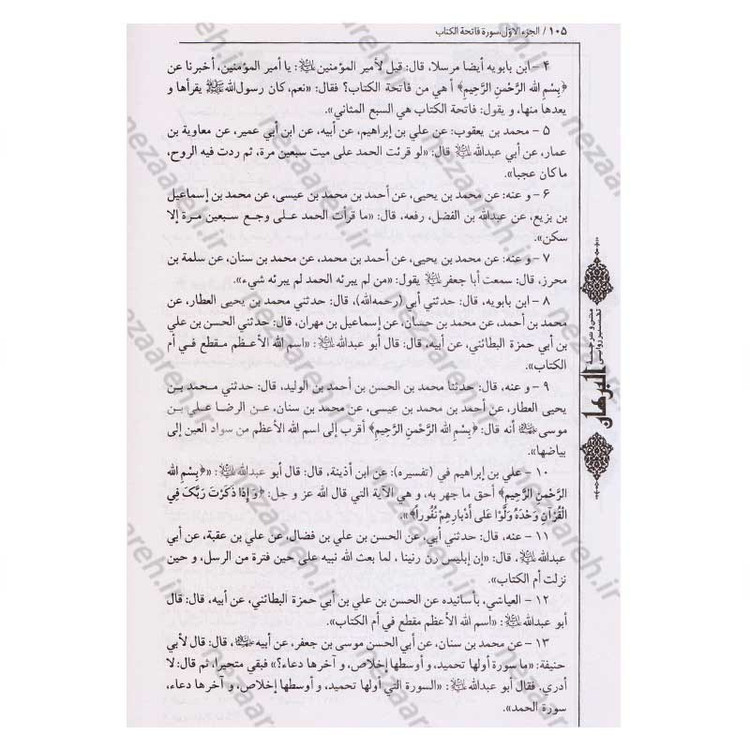 ١٠٥ / الجزء الاوّل،سورة فاتحة الكتاب
۴ – ابن بابويه أيضا مرسلا، قال: قيل لأمير المؤمنين: يا أمير المؤمنين، أخبرنا عن
﴿بِسْمِ الله الرَّحْمٰنِ الرَّحِيمِ﴾ أ هي من فاتحة الكتاب؟ فقال: «نعم، كان رسول‌الله يقرأها و
يعدها منها، و يقول: فاتحة الكتاب هي السبع المثاني».
۵ – محمد بن يعقوب: عن علي بن إبراهيم، عن أبيه، عن ابن أبي عمير، عن معاوية بن
عمار، عن أبي عبدالله قال: «لو قرئت الحمد على ميت سبعين مرة، ثم ردت فيه الروح،
ما كان عجبا».
۶ – و عنه: عن محمد بن يحيى، عن أحمد بن محمد بن عيسى، عن محمد بن إسماعيل
بن بزيع، عن عبدالله بن الفضل، رفعه، قال: «ما قرأت الحمد على وجع سبعين مرة إلا
سكن».
٧ – و عنه: عن محمد بن يحيى، عن أحمد بن محمد، عن محمد بن سنان، عن سلمة بن
محرز، قال: سمعت أبا جعفر يقول: «من لم يبرئه الحمد لم يبرئه شيء».
٨ – ابن بابويه، قال: حدثني أبي (رحمه‌الله)، قال: حدثني محمد بن يحيى العطار، عن
محمد بن أحمد، عن محمد بن حسان، عن إسماعيل بن مهران، قال: حدثني الحسن بن علي
بن أبي حمزة البطائني، عن أبيه، قال: قال أبو عبدالله: «اسم الله الأعظم مقطع في أم
الكتاب».
٩ – و عنه، قال: حدثنا محمد بن الحسن بن أحمد بن الوليد، قال: حدثني محمد بن
يحيى العطار، عن أحمد بن محمد بن عيسى، عن محمد بن سنان، عن الرضا علي بن
موسى أنه قال: ﴿بِسْمِ الله الرَّحْمٰنِ الرَّحِيمِ﴾ أقرب إلى اسم الله الأعظم من سواد العين إلى
بياضها».
١٠ – علي بن إبراهيم في (تفسيره): عن ابن أذينة، قال: قال أبو عبدالله: «﴿بِسْمِ الله
الرَّحْمٰنِ الرَّحِيمِ﴾ أحق ما جهر به، و هي الآية التي قال الله عز و جل: ﴿وَ إِذَا ذَكَرْتَ رَبَّكَ فِي
الْقُرْآنِ وَحْدَهُ وَلَّوْا عَلى أَدْبارِهِمْ نُفُوراً﴾».
١١ – عنه، قال: حدثني أبي، عن الحسن بن علي بن فضال، عن علي بن عقبة، عن أبي
عبدالله، قال: «إن إبليس رن رنينا، لما بعث الله نبيه على حين فترة من الرسل، و حين
نزلت أم الكتاب».
١٢ – العياشي، بأسانيده عن الحسن بن علي بن أبي حمزة البطائني، عن أبيه، قال: قال
أبو عبدالله: «اسم الله الأعظم مقطع في أم الكتاب».
١٣ – عن محمد بن سنان، عن أبي الحسن موسى بن جعفر، عن أبيه، قال: قال لأبي
حنيفة: «ما سورة أولها تحميد، و أوسطها إخلاص، و آخرها دعاء؟» فبقي متحيرا، ثم قال: لا
أدري. فقال أبو عبدالله: «السورة التي أولها تحميد، و أوسطها إخلاص، و آخرها دعاء،
سورة الحمد».
البرهان
nezaareh.ir